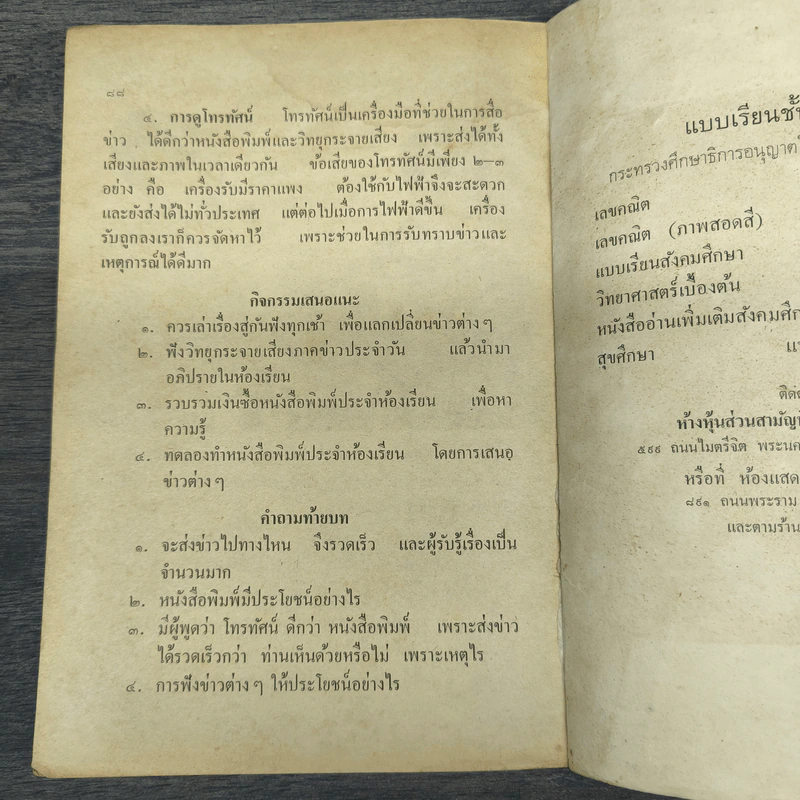 ๘๘
๔. การดูโทรทัศน์ โทรทัศน์เป็นเครื่องมือที่ช่วยในการสื่อ
ข่าว ได้ดีกว่าหนังสือพิมพ์และวิทยุกระจายเสียง เพราะส่งได้ทั้ง
เสียงและภาพในเวลาเดียวกัน ข้อเสียของโทรทัศน์มีเพียง ๒–๓
อย่าง คือ เครื่องรับมีราคาแพง ต้องใช้กับไฟฟ้าจึงจะสะดวก
และยังส่งได้ไม่ทั่วประเทศ แต่ต่อไปเมื่อการไฟฟ้าดีขึ้น เครื่อง
รับถูกลงเราก็ควรจัดหาไว้ เพราะช่วยในการรับทราบข่าวและ
เหตุการณ์ได้ดีมาก
กิจกรรมเสนอแนะ
๑. ควรเล่าเรื่องสู่กันฟังทุกเช้า เพื่อแลกเปลี่ยนข่าวต่าง ๆ
๒. ฟังวิทยุกระจายเสียงภาคข่าวประจำวัน แล้วนำมา
อภิปรายในห้องเรียน
๓. รวบรวมเงินซื้อหนังสือพิมพ์ประจำห้องเรียน เพื่อหา
ความรู้
๔. ทดลองทำหนังสือพิมพ์ประจำห้องเรียน โดยการเสนอ
ข่าวต่าง ๆ
คำถามท้ายบท
๑. จะส่งข่าวไปทางไหน จึงรวดเร็ว และผู้รับรู้เรื่องเป็น
จำนวนมาก
๒. หนังสือพิมพ์มีประโยชน์อย่างไร
๓. มีผู้พูดว่า โทรทัศน์ ดีกว่า หนังสือพิมพ์ เพราะส่งข่าว
ได้รวดเร็วกว่า ท่านเห็นด้วยหรือไม่ เพราะเหตุไร
๔. การฟังข่าวต่าง ๆ ให้ประโยชน์อย่างไร
แบบเรียนชั้น
กระทรวงศึกษาธิการอนุญาต
เลขคณิต
เลขคณิต (ภาพสอดสี)
แบบเรียนสังคมศึกษา
วิทยาศาสตร์เบื้องต้น
หนังสืออ่านเพิ่มเติมสังคมศึก
สุขศึกษา
ห้างหุ้นส่วนสามัญ
๕๙๙ ถนนไมตรีจิต พระนค
หรือที่ ห้องแสด
๘๙๑ ถนนพระราม
และตามร้าน